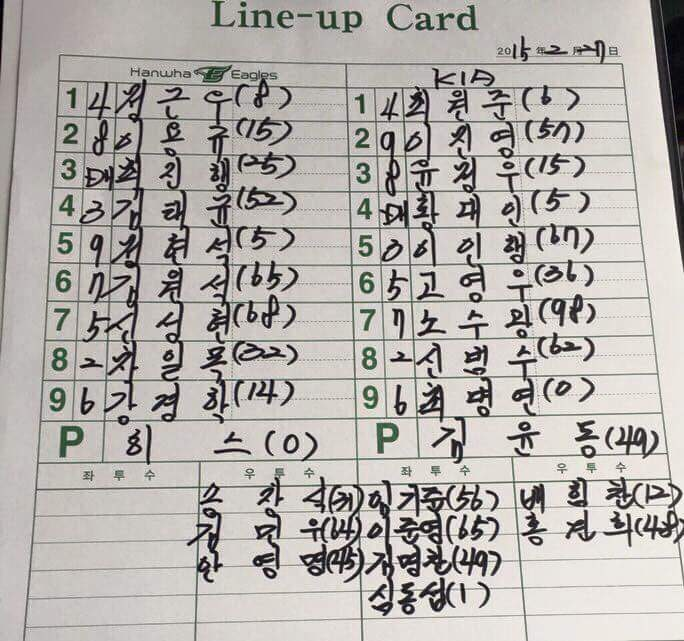 Line-up Card
2015年 2月 27日
Hanwha Eagles
1 4 정 근 우(8)
2 8 이 용 규(15)
3 DH 최 진 행(25)
4 3 김 태 균(52)
5 9 정 현 석(5)
6 7 김 원 석(65)
7 5 신 성 현(68)
8 2 차 일 목(32)
9 6 강 경 학(14)
P 히 스(0)
좌 투 수
우 투 수
송 창 식
김 민 우(64)
안 영 명(45)
KIA
1 4 최 원 준(6)
2 9 이 진 영(57)
3 8 윤 정 우(15)
4 DH 황 대 인(5)
5 3 이 인 행(67)
6 5 고 영 우(36)
7 7 노 수 광(98)
8 2 신 범 수(62)
9 6 최 병 연(0)
P 김 윤 동(49)
좌 투 수
우 투 수
임기준(56) 배 힘 찬(12)
이준영(65) 홍 건 희(48)
김명찬(49)
심동섭(1)